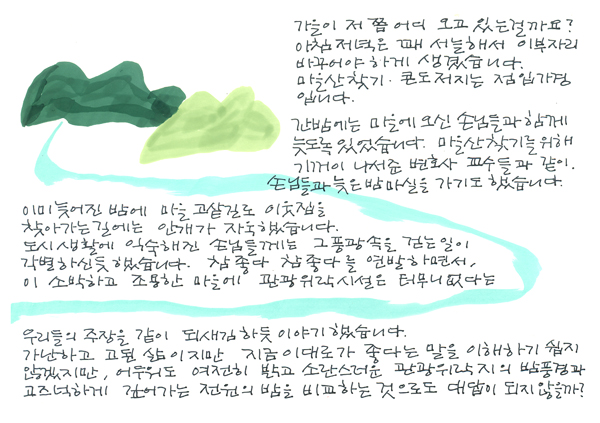 가을이 저 쯤 어디 오고 있는걸까요?
아침저녁은 꽤 서늘해서 이부자리
바꾸어야 하게 생겼습니다.
마을산찾기·콘도저지는 점입가경
입니다.
간밤에는 마을에 오신 손님들과 함께
늦도록 있었습니다. 마을산찾기를 위해
기꺼이 나서준 변호사 교수들과 같이.
손님들과 늦은 밤마실을 가기도 했습니다.
이미 늦어진 밤에 마을 고샅길로 이웃집을
찾아가는길에는 안개가 자욱했습니다.
도시생활에 익숙해진 손님들께는 그풍광속을 걷는일이
각별하신듯 했습니다. 참좋다 참좋다를 연발하면서,
이 소박하고 조용한 마을에 관광위락시설은 터무니없다는
우리들의 주장을 같이 되새김하듯 이야기했습니다.
가난하고 고된 삶이지만 지금이대로가 좋다는 말을 이해하기 쉽지
않겠지만, 어두워도 여전히 밝고 소란스러운 관광위락지의 밤풍경과
고즈넉하게 깊어가는 전원의 밤을 비교하는 것으로도 대답이 되지않을까?